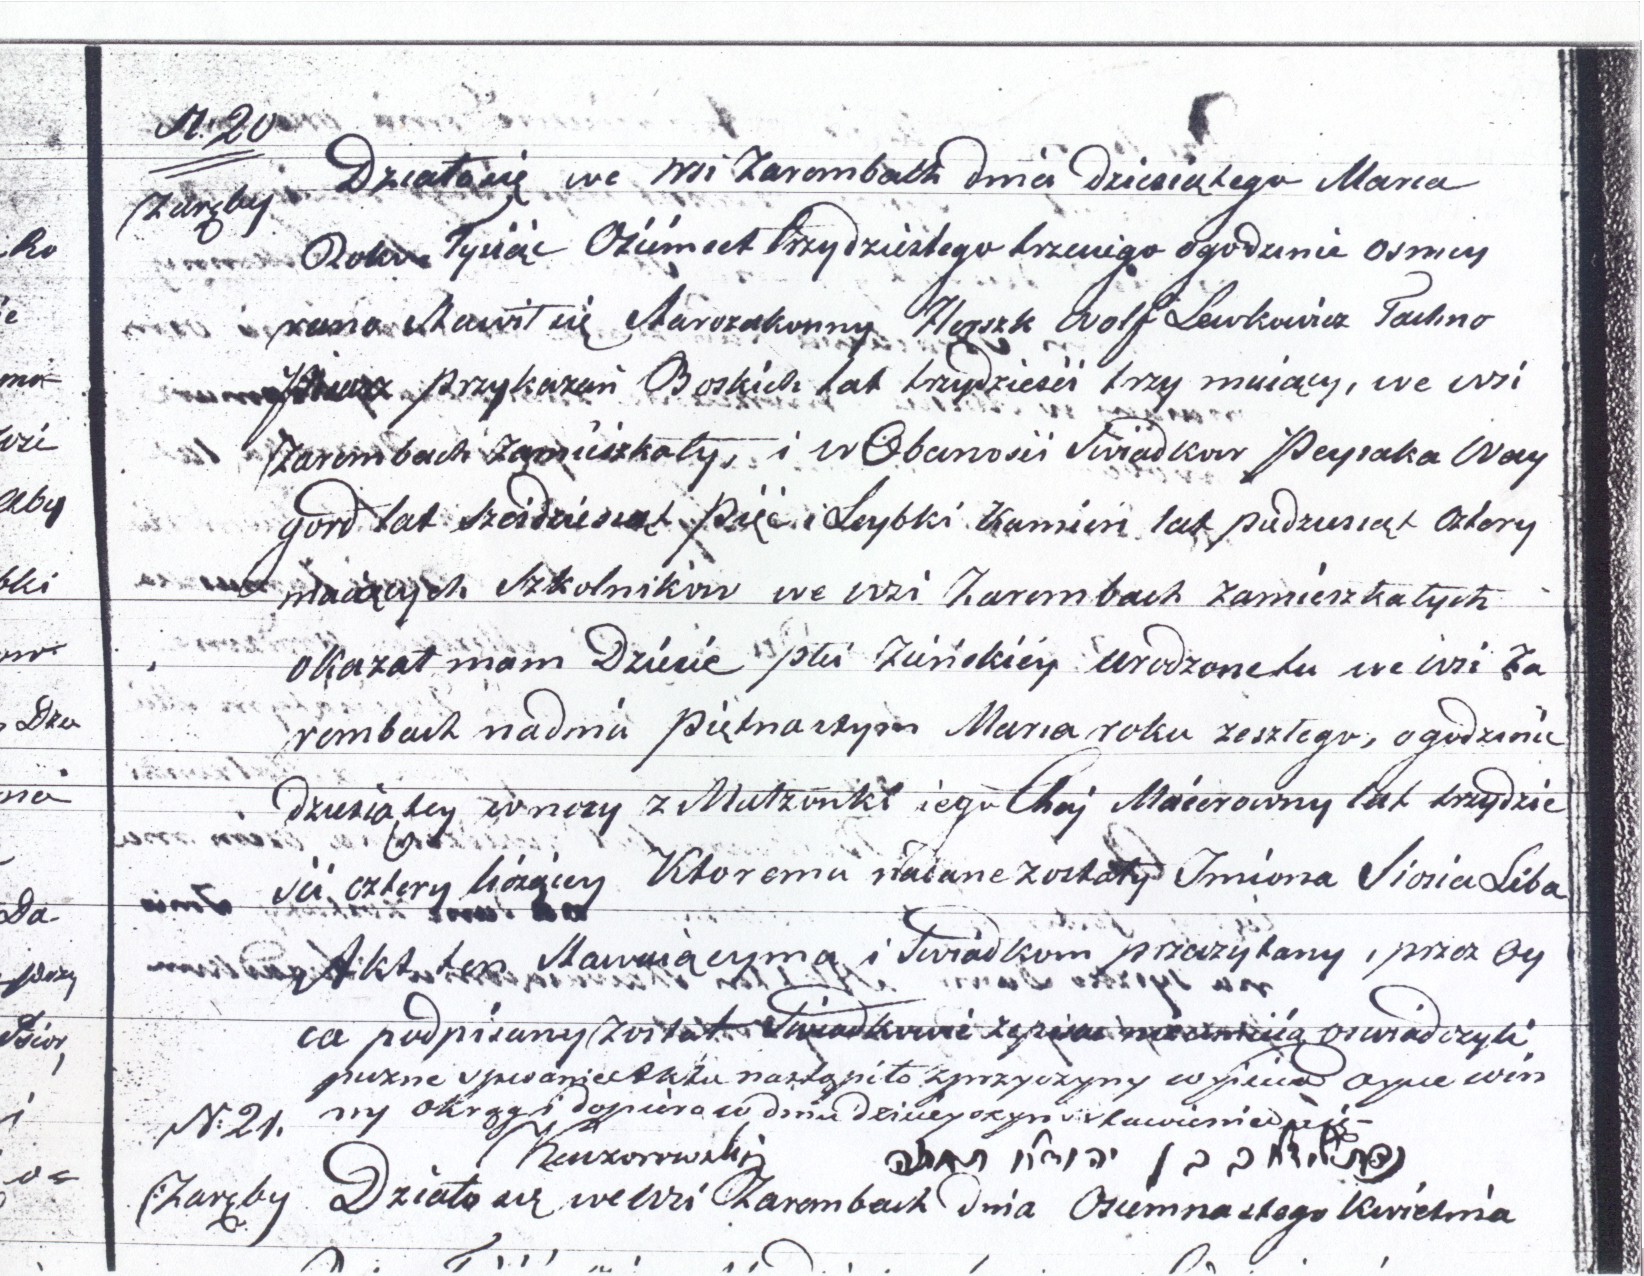 N. 20
Zaręby
Działo się we wsi Zarembach dnia dziesiątego Marca
Roku Tysiąc Ośmset trzydziestego trzeciego o godzinie osmey
rano Stawił się Starozakonny Herszk Wolf Lewkowicz Tachno
przykazań Boskich lat trzydzieści trzy maiący, we wsi
Zarembach zamieszkały, i w Obecności Swiadków Peysaka Way
gord lat sześdziesiąt pięć i Leybki Kamień lat piędziesiąt cztery
maiących Szkolników we wsi Zarembach zamieszkałych
okazał nam Dziecie płci Żeńskiey urodzone tu we wsi Za
rembach na dniu piętnastym Marca roku zeszłego, o godzinie
dziesiątey w nocy z Małżonki iego Chaj Maierowny lat trzydzie
ści cztery liczącey Ktoremu nadane zostały Imiona Siosia Liba
Akt ten Stawaiącymu i Swiadkom przeczytany, przez Oy
ca podpisany został Swiadkowie że pisać nieumieią oswiadczyli
puzne spisanie Aktu nastąpiło z przyczyny wyjścia Oyca w in
ny okrąg i dopiero w dniu dzisieyszym stawienie się
N. 21.
Zaręby Działo się we wsi Zarembach dnia Osiemnastego Kwietnia